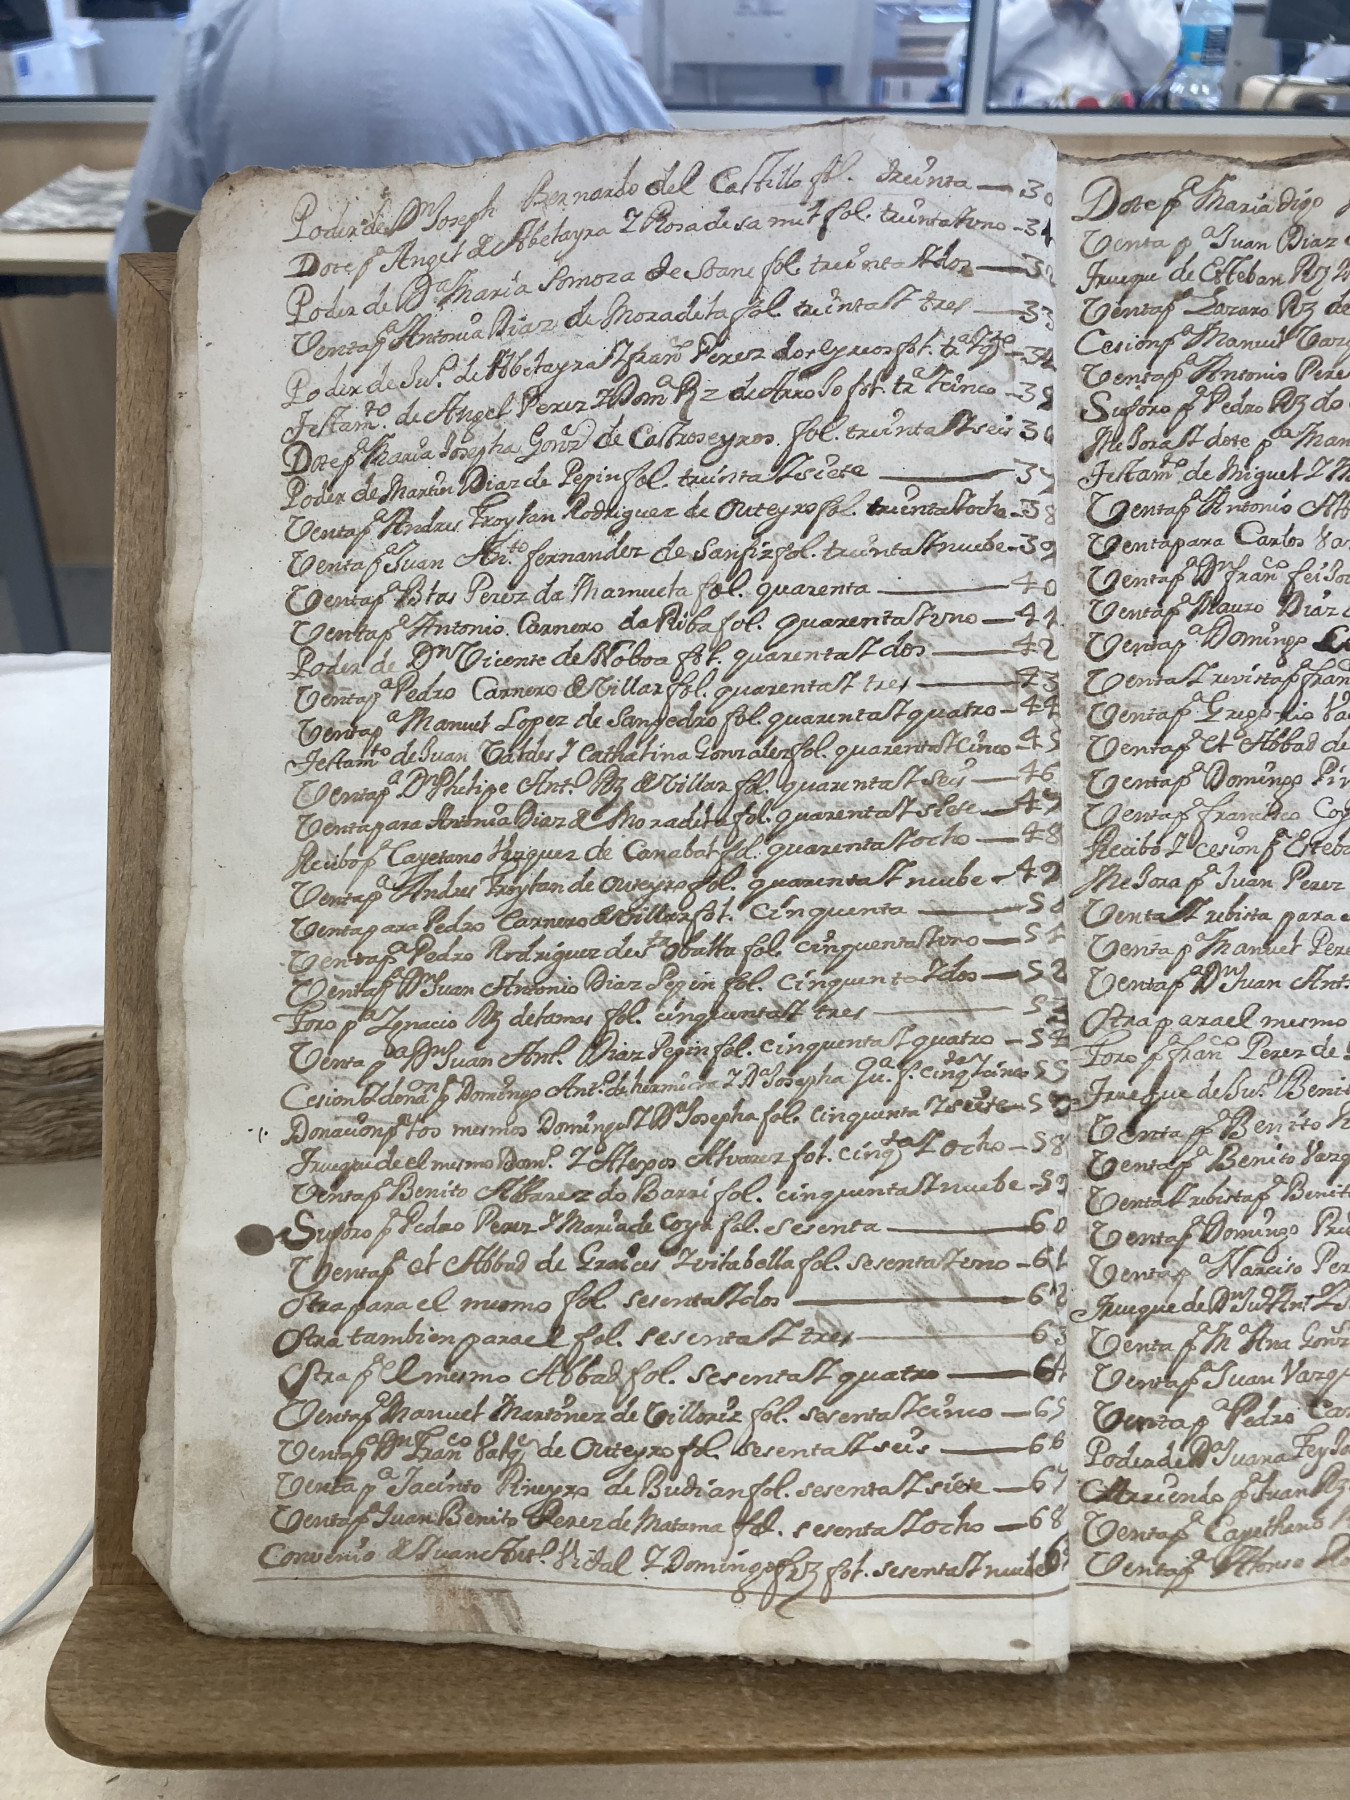 Poder de Dn Joseph Bernardo del Castillo fol. treinta — 30
Dote pa Angel de Abelayra Y Rosa de sa mil fol. treinta Y uno - 31
Poder de Da Maria Somoza de Seoane fol. treinta Y dos — 32
Venta pa Antonia Diaz de Moradela fol. treinta Y tres — 33
Poder de Jun. de Abelayra Y Franco Perez dos eyreos fol. tra Y qto - 34
Testamto de Angel Perez Y Doma Rz de Arrojo fol. tra Y cinco - 35
Dote pa Maria Josepha Gonz de Castroseyros. fol. treinta Y seis 36
Poder de Martin Diaz de Pepin fol. treinta Y siete — 37
Venta pa Andres Froylan Rodriguez de Outeyro fol. treinta Y ocho - 38
Venta pa Juan Anto fernandez de Sanfiz fol. treinta Y nuebe - 39
Venta pa Blas Perez da Mamuela fol. quarenta — 40
Venta pa Antonio Carnero da Riba fol. quarenta Y uno — 41
Poder de Dn Vicente de Noboa fol. quarenta Y dos — 42
Venta pa Pedro Carnero de Villar fol. quarenta Y tres — 43
Venta pa Manuel Lopez de Sanpedro fol. quarenta Y quatro - 44
Testamto de Juan Valdes Y Cathalina Gonzalez fol. quarenta Y cinco - 45
Venta pa Dn Phelipe Anto Rz de Villar fol. quarenta Y seis — 46
Venta para Antonia Diaz de Moradela fol. quarenta Y siete — 47
Recibo pa Cayetano Vazquez de Canabal fol. quarenta Y ocho — 48
Venta pa Andres Froylan de Outeyro fol. quarenta Y nuebe - 49
Venta para Pedro Carnero de Villar fol. cinquenta — 50
Venta pa Pedro Rodriguez de fol. cinquenta Y uno — 51
Venta pa Dn Juan Antonio Diaz Pepin fol. cinquenta Y dos — 52
Foro pa Ygnacio Rz de Lamas fol. cinquenta Y tres — 53
Venta pa Dn Juan Anto. Diaz Pepin fol. cinquenta Y quatro - 54
Cesion Y donaon pa Domingo Anto. Y Da Josepha f. cinqta Y cinco 55
Donacion pa los mesmos Domingo Y Da Josepha fol. cinquenta Y siete - 57
Trueque de el mesmo Domo. Y Alexos Alvarez fol. cinqta Y ocho - 58
Venta pa Benito Albarez do Barri fol. cinquenta Y nuebe - 59
Suforo pa Pedro Perez Y Maria de Coya fol. sesenta — 60
Venta pa el Abbad de Graices Y vilabella fol. sesenta Y uno - 61
Otra para el mismo fol. sesenta Y dos — 62
Otra tambien para el fol. sesenta Y tres — 63
Otra pa el mesmo Abbad fol. sesenta Y quatro — 64
Venta pa Manuel Martinez de Villoriz fol. sesenta Y cinco — 65
Venta pa Dn Franco Valz de Outeyro fol. sesenta Y seis — 66
Venta pa Jacinto Pineyro de Budian fol. sesenta Y siete — 67
Venta pa Juan Benito Perez de Matama fol. sesenta Y ocho — 68
Convenio de Juan Anto. Vidal Y Domingo frz fol. sesenta Y nuebe 69
Dote pa Maria digo
Venta pa Juan Diaz
Trueque de Esteban Rz
Venta pa Lazaro Rz de
Cesion pa Manuel Varg
Venta pa Antonio Pere
Suforo pa Pedro Rz do
Mejora Y dote pa Man
Testamto de Miguel Y M
Venta pa Antonio Al
Venta para Carlos Va
Venta pa Dn franco feijo
Venta pa Mauro Diaz
Venta pa Domingo
Venta Y revista pa fran
Venta pa Gregorio Va
Venta pa el Abbad de
Venta pa Domingo Pi
Venta pa francisco Co
Recibo Y cesion pa Esteba
Mejora pa Juan Perez
Venta Y rebista para
Venta pa Manuel Pere
Venta pa Dn Juan Ant.
Otra para el mesmo
Foro pa franco Perez de
Trueque de Jun. Benit
Venta pa Benito
Venta pa Benito Vazq
Venta Y rebista pa Benit
Venta pa Domingo
Venta pa Narciso Per
Trueque de Dn Jun Anto
Venta pa Ma Ana Gonz
Venta pa Juan Vazq
Venta pa Pedro Car
Poder de Da Juana Feyjo
Arriendo pa Juan Rz
Venta pa Cayethano
Venta pa Alonso